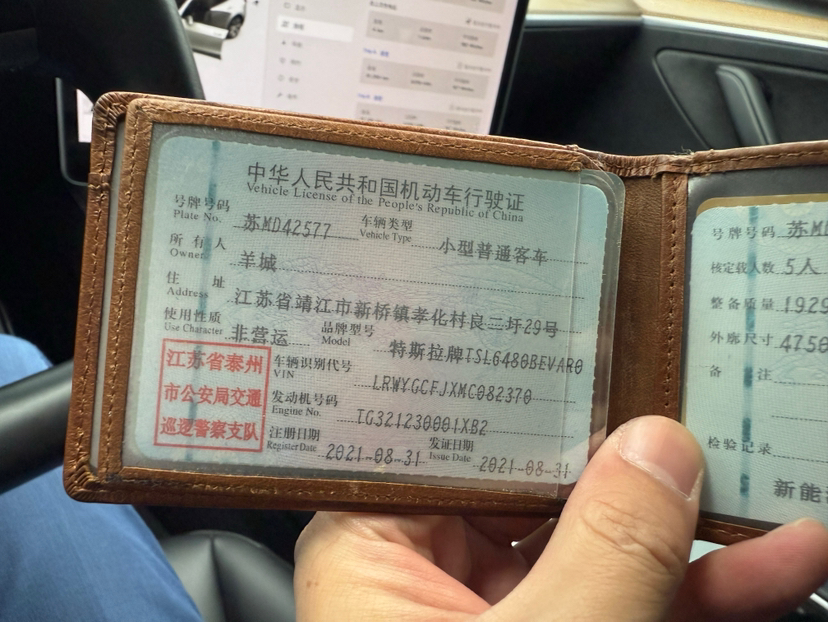 中华人民共和国机动车行驶证
Vehicle License of the People's Republic of China
号牌号码 苏MD42577 车辆类型 小型普通客车
Plate No. Vehicle Type
所有人 羊城
Owner
住址 江苏省靖江市新桥镇孝化村良二圩29号
Address
使用性质 非营运 品牌型号 特斯拉牌TSL6480BEVAR0
Use Character Model
江苏省泰州
市公安局交通
巡逻警察支队
车辆识别代号 LRWYGCFJXMC082370
VIN
发动机号码 TG321230001XB2
Engine No.
注册日期 2021-08-31 发证日期 2021-08-31
Register Date Issue Date
号牌号码 苏MD
核定载人数 5人
整备质量 1929
外廓尺寸 4750
备注
检验记录
新能